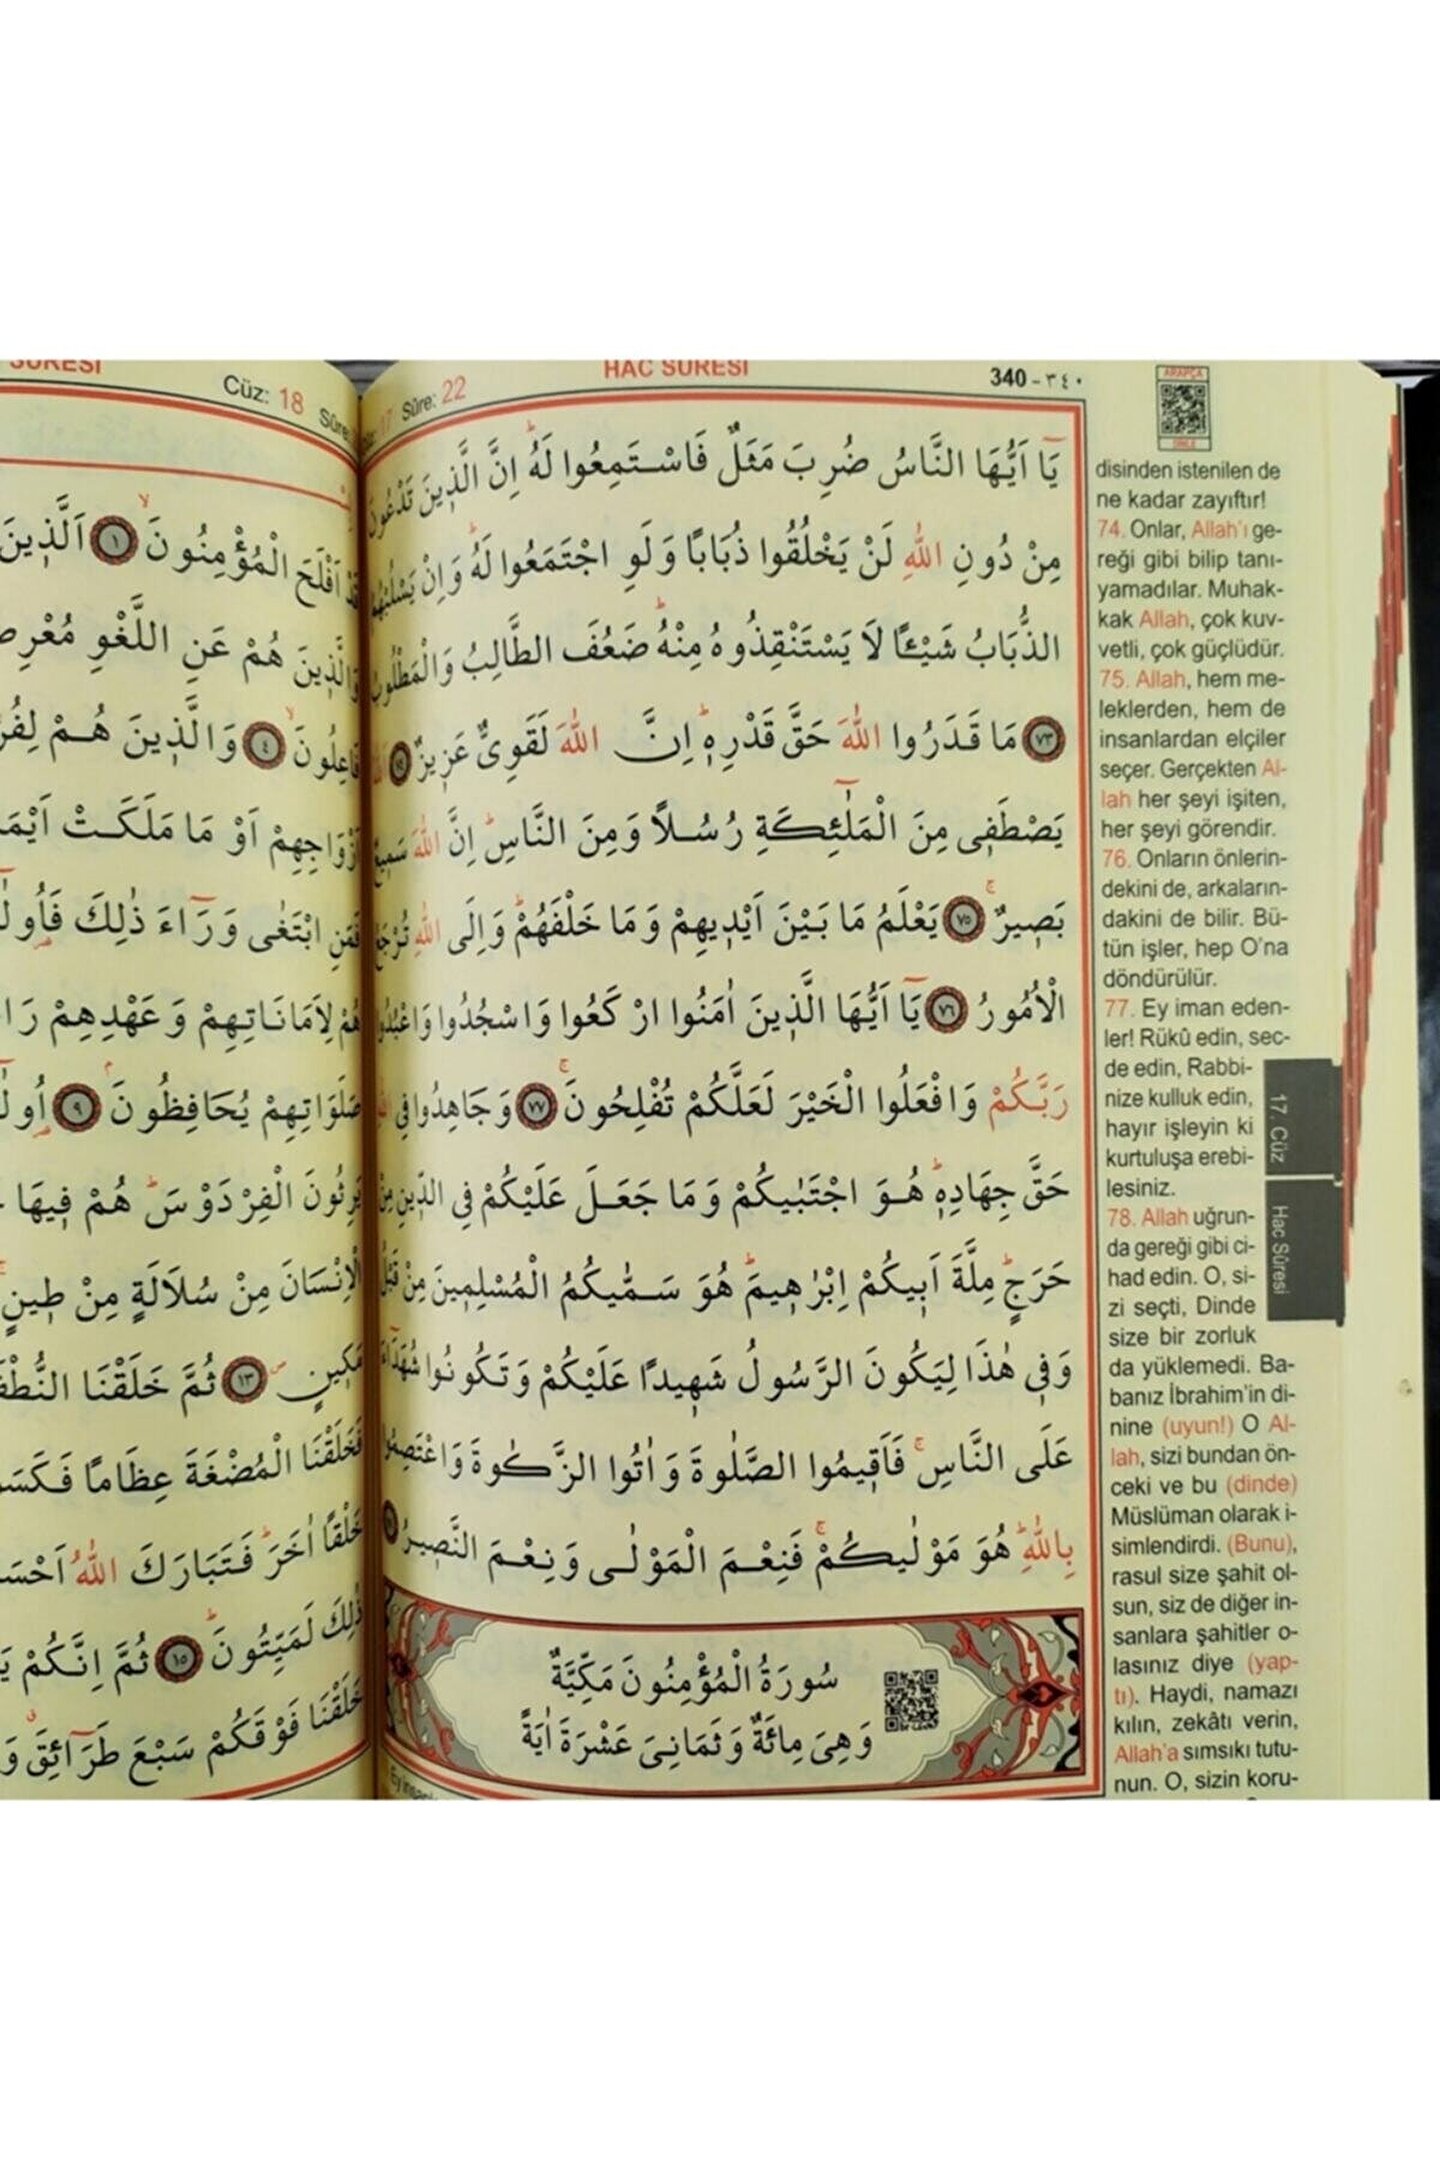 HAC SÛRESİ
340 - ٣٤٠
Sûre: 22
يَٓا اَيُّهَا النَّاسُ ضُرِبَ مَثَلٌ فَاسْتَمِعُوا لَهُۜ اِنَّ الَّذ۪ينَ تَدْعُونَ
مِنْ دُونِ اللّٰهِ لَنْ يَخْلُقُوا ذُبَابًا وَلَوِ اجْتَمَعُوا لَهُۜ وَاِنْ يَسْلُبْهُمُ
الذُّبَابُ شَيْـًٔا لَا يَسْتَنْقِذُوهُ مِنْهُۜ ضَعُفَ الطَّالِبُ وَالْمَطْلُوبُ
﴿٧٣﴾ مَا قَدَرُوا اللّٰهَ حَقَّ قَدْرِه۪ۜ اِنَّ اللّٰهَ لَقَوِيٌّ عَز۪يزٌ ﴿٧٤﴾
يَصْطَف۪ي مِنَ الْمَلٰٓئِكَةِ رُسُلًا وَمِنَ النَّاسِۜ اِنَّ اللّٰهَ سَم۪يعٌ
بَص۪يرٌۚ ﴿٧٥﴾ يَعْلَمُ مَا بَيْنَ اَيْد۪يهِمْ وَمَا خَلْفَهُمْۜ وَاِلَى اللّٰهِ تُرْجَعُ
الْاُمُورُ ﴿٧٦﴾ يَٓا اَيُّهَا الَّذ۪ينَ اٰمَنُوا ارْكَعُوا وَاسْجُدُوا وَاعْبُدُوا
رَبَّكُمْ وَافْعَلُوا الْخَيْرَ لَعَلَّكُمْ تُفْلِحُونَۚ ﴿٧٧﴾ وَجَاهِدُوا فِي
حَقَّ جِهَادِه۪ۜ هُوَ اجْتَبٰيكُمْ وَمَا جَعَلَ عَلَيْكُمْ فِي الدّ۪ينِ مِنْ
حَرَجٍۜ مِلَّةَ اَب۪يكُمْ اِبْرٰه۪يمَۜ هُوَ سَمّٰيكُمُ الْمُسْلِم۪ينَ مِنْ قَبْلُ
وَف۪ي هٰذَا لِيَكُونَ الرَّسُولُ شَه۪يدًا عَلَيْكُمْ وَتَكُونُوا شُهَدَٓاءَ
عَلَى النَّاسِۚ فَاَق۪يمُوا الصَّلٰوةَ وَاٰتُوا الزَّكٰوةَ وَاعْتَصِمُوا
بِاللّٰهِۜ هُوَ مَوْلٰيكُمْۚ فَنِعْمَ الْمَوْلٰى وَنِعْمَ النَّص۪يرُ
سُورَةُ الْمُؤْمِنُونَ مَكِّيَّةٌ
وَهِيَ مِائَةٌ وَثَمَانِيَ عَشْرَةَ اٰيَةً
ARAPÇA
DİNLE
disinden istenilen de
ne kadar zayıftır!
74. Onlar, Allah'ı ge-
reği gibi bilip tanı-
yamadılar. Muhak-
kak Allah, çok kuv-
vetli, çok güçlüdür.
75. Allah, hem me-
leklerden, hem de
insanlardan elçiler
seçer. Gerçekten Al-
lah her şeyi işiten,
her şeyi görendir.
76. Onların önlerin-
dekini de, arkaların-
dakini de bilir. Bü-
tün işler, hep O'na
döndürülür.
77. Ey iman eden-
ler! Rükû edin, sec-
de edin, Rabbi-
nize kulluk edin,
hayır işleyin ki
kurtuluşa erebi-
lesiniz.
78. Allah uğrun-
da gereği gibi ci-
had edin. O, si-
zi seçti, Dinde
size bir zorluk
da yüklemedi. Ba-
banız İbrahim'in di-
nine (uyun!) O Al-
lah, sizi bundan ön-
ceki ve bu (dinde)
Müslüman olarak i-
simlendirdi. (Bunu),
rasul size şahit ol-
sun, siz de diğer in-
sanlara şahitler o-
lasınız diye (yap-
tı). Haydi, namazı
kılın, zekâtı verin,
Allah'a sımsıkı tutu-
nun. O, sizin koru-
17. Cüz
Hac Sûresi
SÛRESİ
Cüz: 18
Sûre
قَدْ اَفْلَحَ الْمُؤْمِنُونَۙ ﴿١﴾ اَلَّذ۪ينَ
وَالَّذ۪ينَ هُمْ عَنِ اللَّغْوِ
فَاعِلُونَۙ ﴿٤﴾ وَالَّذ۪ينَ هُمْ
اَزْوَاجِهِمْ اَوْ مَا مَلَكَتْ
فَمَنِ ابْتَغٰى وَرَٓاءَ ذٰلِكَ
هُمْ لِاَمَانَاتِهِمْ وَعَهْدِهِمْ
صَلَوَاتِهِمْ يُحَافِظُونَۢ ﴿٩﴾
يَرِثُونَ الْفِرْدَوْسَۜ هُمْ ف۪يهَا
الْاِنْسَانَ مِنْ سُلَالَةٍ مِنْ ط۪ينٍۚ
مَك۪ينٍۖ ﴿١٣﴾ ثُمَّ خَلَقْنَا
فَخَلَقْنَا الْمُضْغَةَ عِظَامًا
خَلْقًا اٰخَرَۜ فَتَبَارَكَ اللّٰهُ
ذٰلِكَ لَمَيِّتُونَۜ ﴿١٥﴾ ثُمَّ اِنَّكُمْ
خَلَقْنَا فَوْقَكُمْ سَبْعَ طَرَٓائِقَۗ